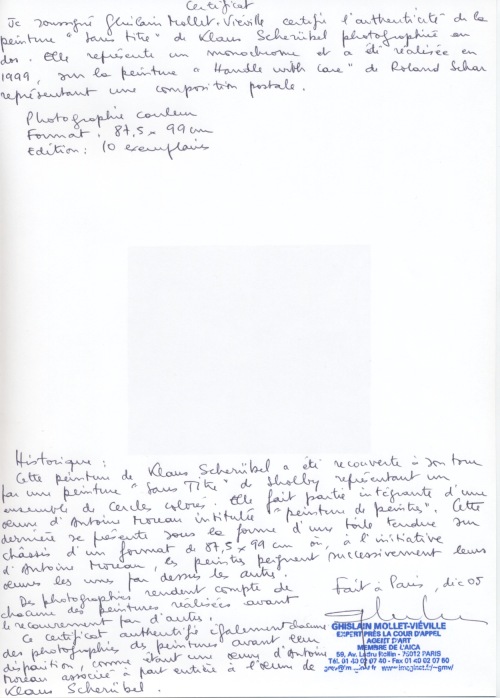 Certificat
Je soussigné Ghislain Mollet-Viéville certifie l'authenticité de la
peinture "Sans titre" de Klaus Scherübel photographiée au
dos. Elle représente un monochrome et a été réalisée en
1999, sur la peinture "Handle with Care" de Roland Schär
représentant une composition postale.
Photographie couleur
Format : 87,5 x 99 cm
Edition : 10 exemplaires
Historique :
Cette peinture de Klaus Scherübel a été recouverte à son tour
par une peinture "Sans Titre" de Sholby représentant un
ensemble de cercles colorés. Elle fait partie intégrante d'une
œuvre d'Antoine Moreau intitulée "peinture de peintres". Cette
dernière se présente sous la forme d'une toile tendue sur
châssis d'un format de 87,5 x 99 cm où, à l'initiative
d'Antoine Moreau, les peintres peignent successivement leurs
œuvres les unes par dessus les autres.
Des photographies rendent compte de
chacune des peintures réalisées avant
le recouvrement par d'autres.
Fait à Paris, dic 05
Ce certificat authentifie également chacune
des photographies des peintures avant leur
disparition, comme étant une œuvre d'Antoine
Moreau associée à part entière à l'œuvre de
Klaus Scherübel.
GHISLAIN MOLLET-VIÉVILLE
EXPERT PRÈS LA COUR D'APPEL
AGENT D'ART
MEMBRE DE L'AICA
59, Av. Ledru Rollin - 75012 PARIS
Tél. 01 40 02 07 40 - Fax 01 40 02 07 60